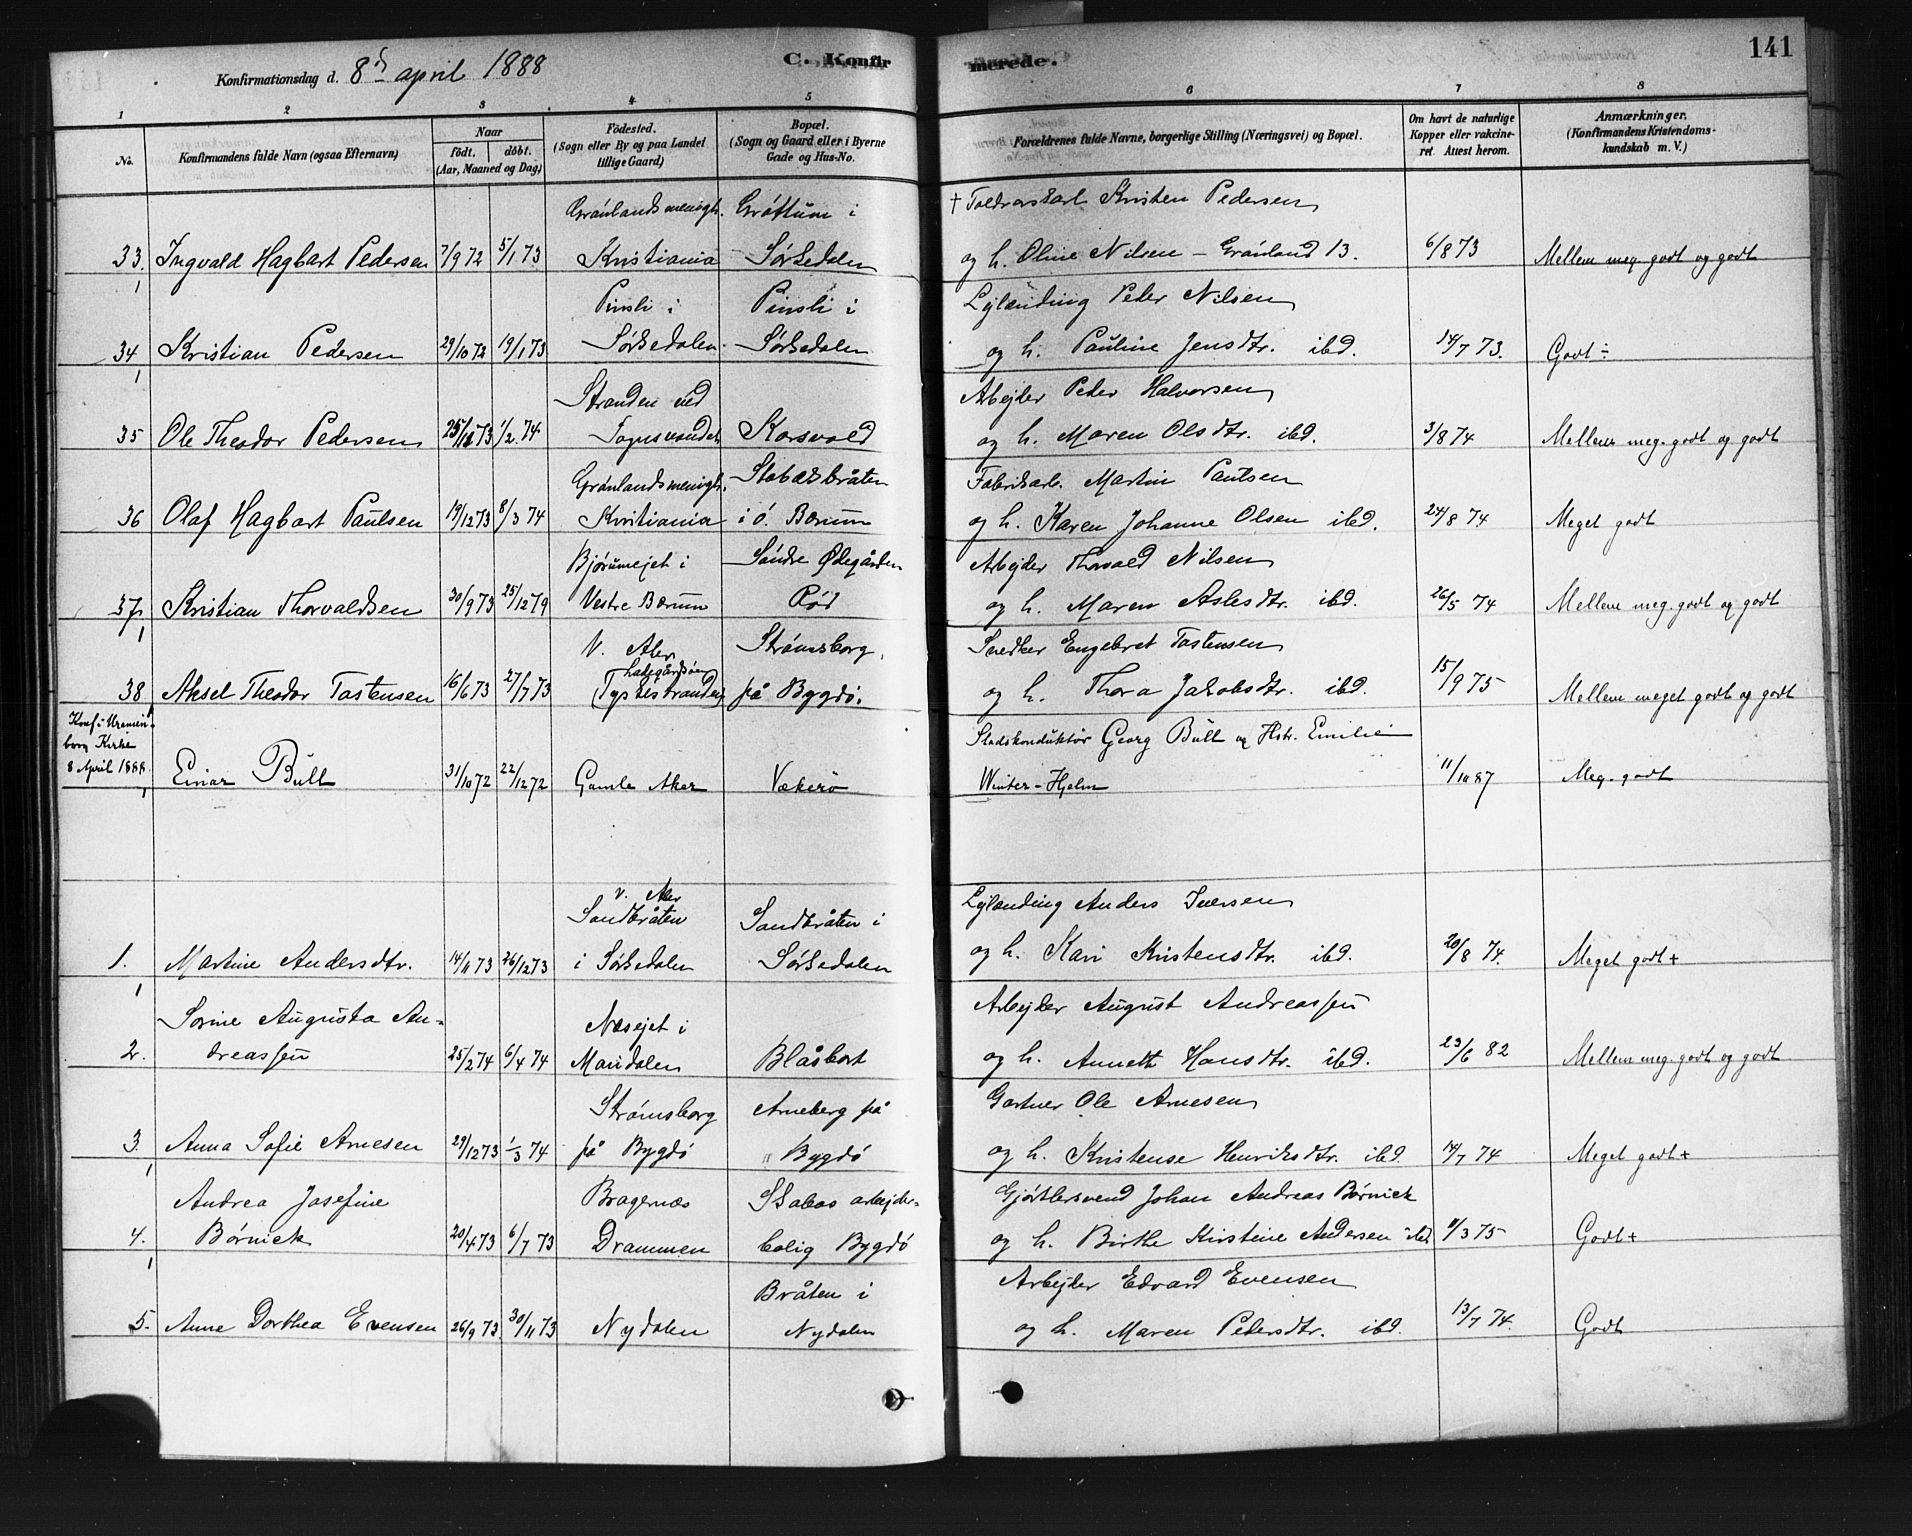 141
Konfirmationsdag d. 8d april 1888 C. Konfirmerede.
1 2 3 4 5 6 7 8
No. Konfirmandens fulde Navn (ogsaa Efternavn) Naar Födt. döbt. (Aar, Maaned og Dag) Födested. (Sogn eller By og paa Landet tillige Gaard) Bopæl. (Sogn og Gaard eller i Byerne Gade og Hus-No. Forældrenes fulde Navne, borgerlige Stilling (Næringsvei) og Bopæl. Om havt de naturlige Kopper eller vakcineret Attest herom. Anmærkninger. (Konfirmandens Kristendomskundskab m. V.)
Grønlandsmenigh. Grøttum i † Toldrorskarl Kristen Pedersen
33. Ingvald Hagbart Pedersen 7/9 72 5/1 73 Kristiania Sørkedalen og h. Oline Nilsen - Grønland 13. 6/8 73 Mellem meg. godt og godt
Pinsli i Pinsli i Lejlænding Peder Nilsen
34 Kristian Pedersen 29/10 72 19/1 73 Sørkedalen. Sørkedalen og h. Pauline Jensdtr. ibd. 14/7 73. Godt ÷
Stranden ved Arbejder Peder Halvorsen
35 Ole Theodor Pedersen 25/12 73 1/2 74 Sognsvandet Korsvold og h. Maren Olsdtr. ibd. 3/8 74 Mellem meg. godt og godt
Grønlandsmenigh. Stabæksbråten Fabrikarb. Martin Paulsen
36 Olaf Hagbart Paulsen 19/12 73 8/3 74 Kristiania i ö. Bærum og h. Karen Johanne Olsen ibd. 24/8 74 Meget godt
Bjørumejet i Söndre Ødegården Arbejder Thorvald Nilsen
37. Kristian Thorvaldsen 30/9 73 25/12 79 Vestre Bærum Röd og h. Maren Aslesdtr. ibd. 26/5 74 Mellem meg. godt og godt
V. Aker Strømsborg Snedker Engebret Tostensen
Ladegårdsøen
38 Aksel Theodor Tostensen 16/6 73 27/7 73 (Tyskestranden) på Bygdö. og h. Thora Jakobsdtr. ibd. 15/9 75 Mellem meget godt og godt
Konf. i Uranienborg Kirke 8 April 1888. Stadskonduktør Georg Bull og Hstr. Emilie
Einar Bull 31/10 72 22/12 72 Gamle Aker Vækerø Winter-Hjelm 11/10 87 Meg. godt
v. Aker
Sandbråten Sandbråten i Lejlænding Anders Iversen
1. Martine Andersdtr. 14/11 73 26/12 73 i Sørkedalen Sørkedalen og h. Kari Kristensdtr. ibd. 20/8 74. Meget godt +
Sorine Augusta An- Næsejet i Arbejder August Andreassen
2. dreassen 25/2 74 6/4 74 Maridalen Blåsbort og h. Annette Hansdtr. ibd. 23/6 82 Mellem meg. godt og godt
Strømsborg Arneberg på Gartner Ole Arnesen
3. Anna Sofie Arnesen 29/12 73 1/3 74 på Bygdö Bygdö og h. Kristense Henriksdtr. ibd. 14/7 74 Meget godt +
Andrea Josefine Bragernæs Skabos arbejder- Gjørtlersvend Johan Andreas Børnick
4. Børnick 20/4 73 6/7 73 Drammen bolig Bygdö og h. Birthe Kirstine Andersen ibd. 11/3 75 Godt +
Bråten i Arbejder Edvard Evensen
5. Anne Dorthea Evensen 26/9 73 30/11 73 Nydalen Nydalen og h. Maren Pedersdtr. ibd. 13/7 74. Godt